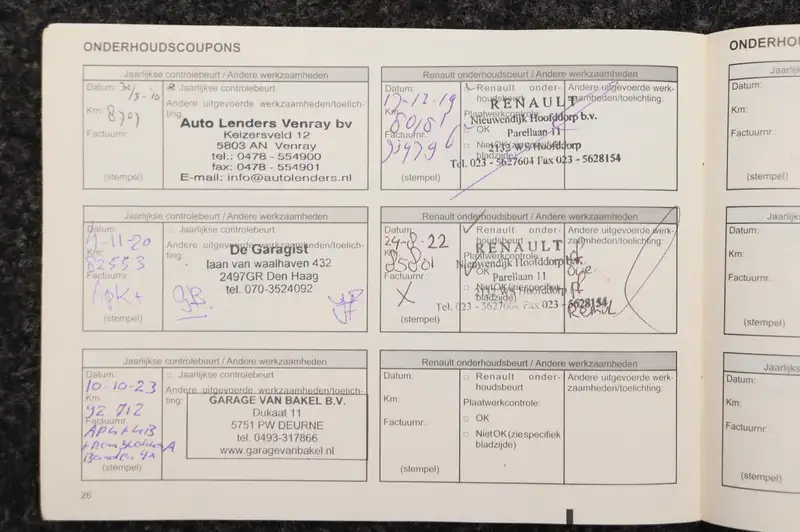 ONDERHOUDSCOUPONS
Jaarlijkse controlebeurt / Andere werkzaamheden
Datum: 30/3-10
Jaarlijkse controlebeurt
Km:
Andere uitgevoerde werkzaamheden/toelichting:
Factuurnr.:
(stempel)
Auto Lenders Venray bv
Keizersveld 12
5803 AN Venray
tel.: 0478 - 554900
fax: 0478 - 554901
E-mail: info@autolenders.nl
Renault onderhoudsbeurt / Andere werkzaamheden
Datum:
17-12-19
Km:
Factuurnr.:
(stempel)
Renault onder-
houdsbeurt
Plaatwerkcontrole:
OK
Niet OK (zie specifiek
bladzijde)
Andere uitgevoerde werk-
zaamheden/toelichting:
RENAULT
Nieuwendijk Hoofddorp b.v.
Parellaan 11
2132 WS Hoofddorp
Tel. 023 - 5627604 Fax 023 - 5628154
Jaarlijkse controlebeurt / Andere werkzaamheden
Datum:
-11-20
Km:
82553
Factuurnr.:
APK+
(stempel)
Jaarlijkse controlebeurt
Andere uitgevoerde werkzaamheden/toelichting:
De Garagist
laan van waalhaven 432
2497GR Den Haag
tel. 070-3524092
Renault onderhoudsbeurt / Andere werkzaamheden
Datum:
24-8-22
Km:
85801
Factuurnr.:
X
(stempel)
Renault onder-
houdsbeurt
Plaatwerkcontrole:
OK
Niet OK (zie specifiek
bladzijde)
Andere uitgevoerde werk-
zaamheden/toelichting:
RENAULT
Nieuwendijk Hoofddorp b.v.
Parellaan 11
2132 WS Hoofddorp
Tel. 023 - 5627604 Fax 023 - 5628154
Jaarlijkse controlebeurt / Andere werkzaamheden
Datum:
10-10-23
Km:
92 712
Factuurnr.:
(stempel)
Jaarlijkse controlebeurt
Andere uitgevoerde werkzaamheden/toelichting:
GARAGE VAN BAKEL B.V.
Dukaat 11
5751 PW DEURNE
tel. 0493-317866
www.garagevanbakel.nl
Renault onderhoudsbeurt / Andere werkzaamheden
Datum:
Km:
Factuurnr.:
(stempel)
Renault onder-
houdsbeurt
Plaatwerkcontrole:
OK
Niet OK (zie specifiek
bladzijde)
Andere uitgevoerde werk-
zaamheden/toelichting:
26
ONDERHO
Jaarlij
Datum:
Km:
Factuurnr.:
(stempel)
Jaarli
Datum:
Km:
Factuurnr.:
(stempel)
Jaarl
Datum:
Km:
Factuurnr.:
(stempel)